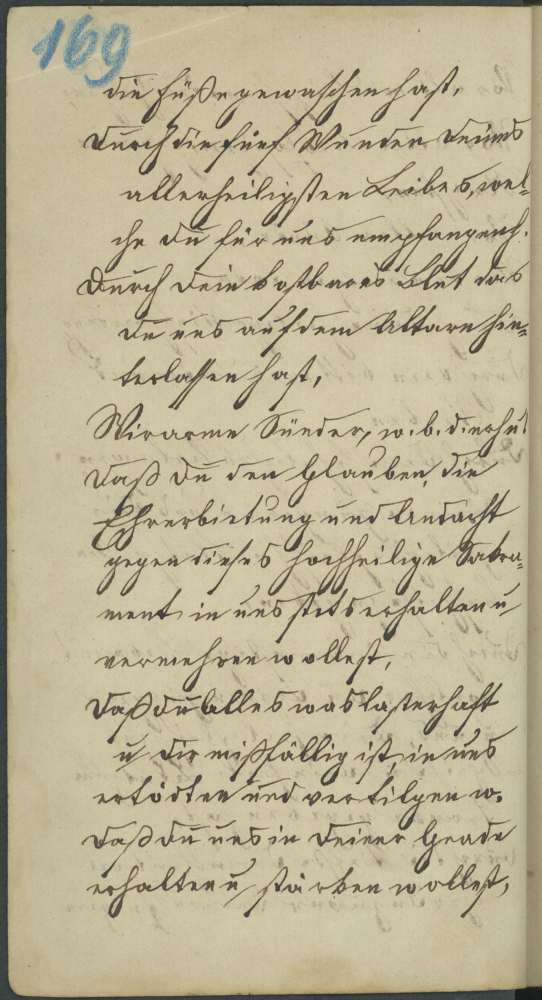 169
die Füße gewaschen hast,
Durch die fünf Wunden Deines
allerheiligsten Leibes, wel=
che du für uns empfangen h.
Durch Dein kostbares Blut das
du uns auf dem Altare hin=
terlassen hast,
Wir arme Sünder, w. b. d. erhö!
Daß du den Glauben, die
Ehrerbietung und Andacht
gegen dieses hochheilige Sakra=
ment in uns stets erhalten u
vermehren wollest,
Daß du Alles was lasterhaft
u dir mißfällig ist, in uns
ertödten und vertilgen w.
Daß du uns in Deiner Gnade
erhalten u stärken wollest,